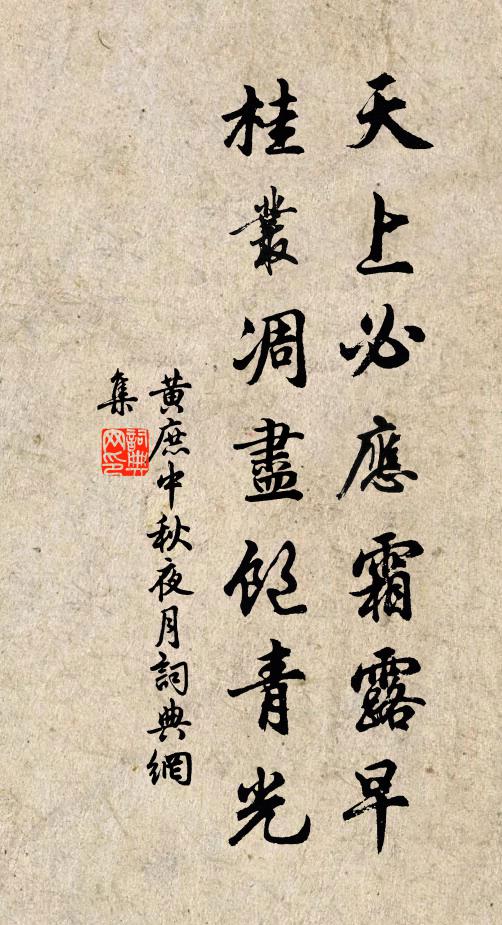 天上必應霜露早
桂叢凋盡飽青光
黃庶中秋夜月詞典網
集
詞典
网印